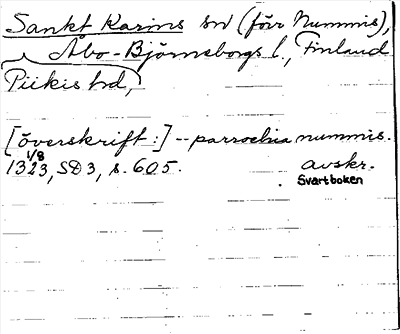 Sankt Karins sn (förr Nummis),
Åbo-Björneborgs l., Finland
Piikis hd,
[överskrift:] -- parrochia nummis.
1/8
1323, SD3, s. 605. avskr.
Svartboken